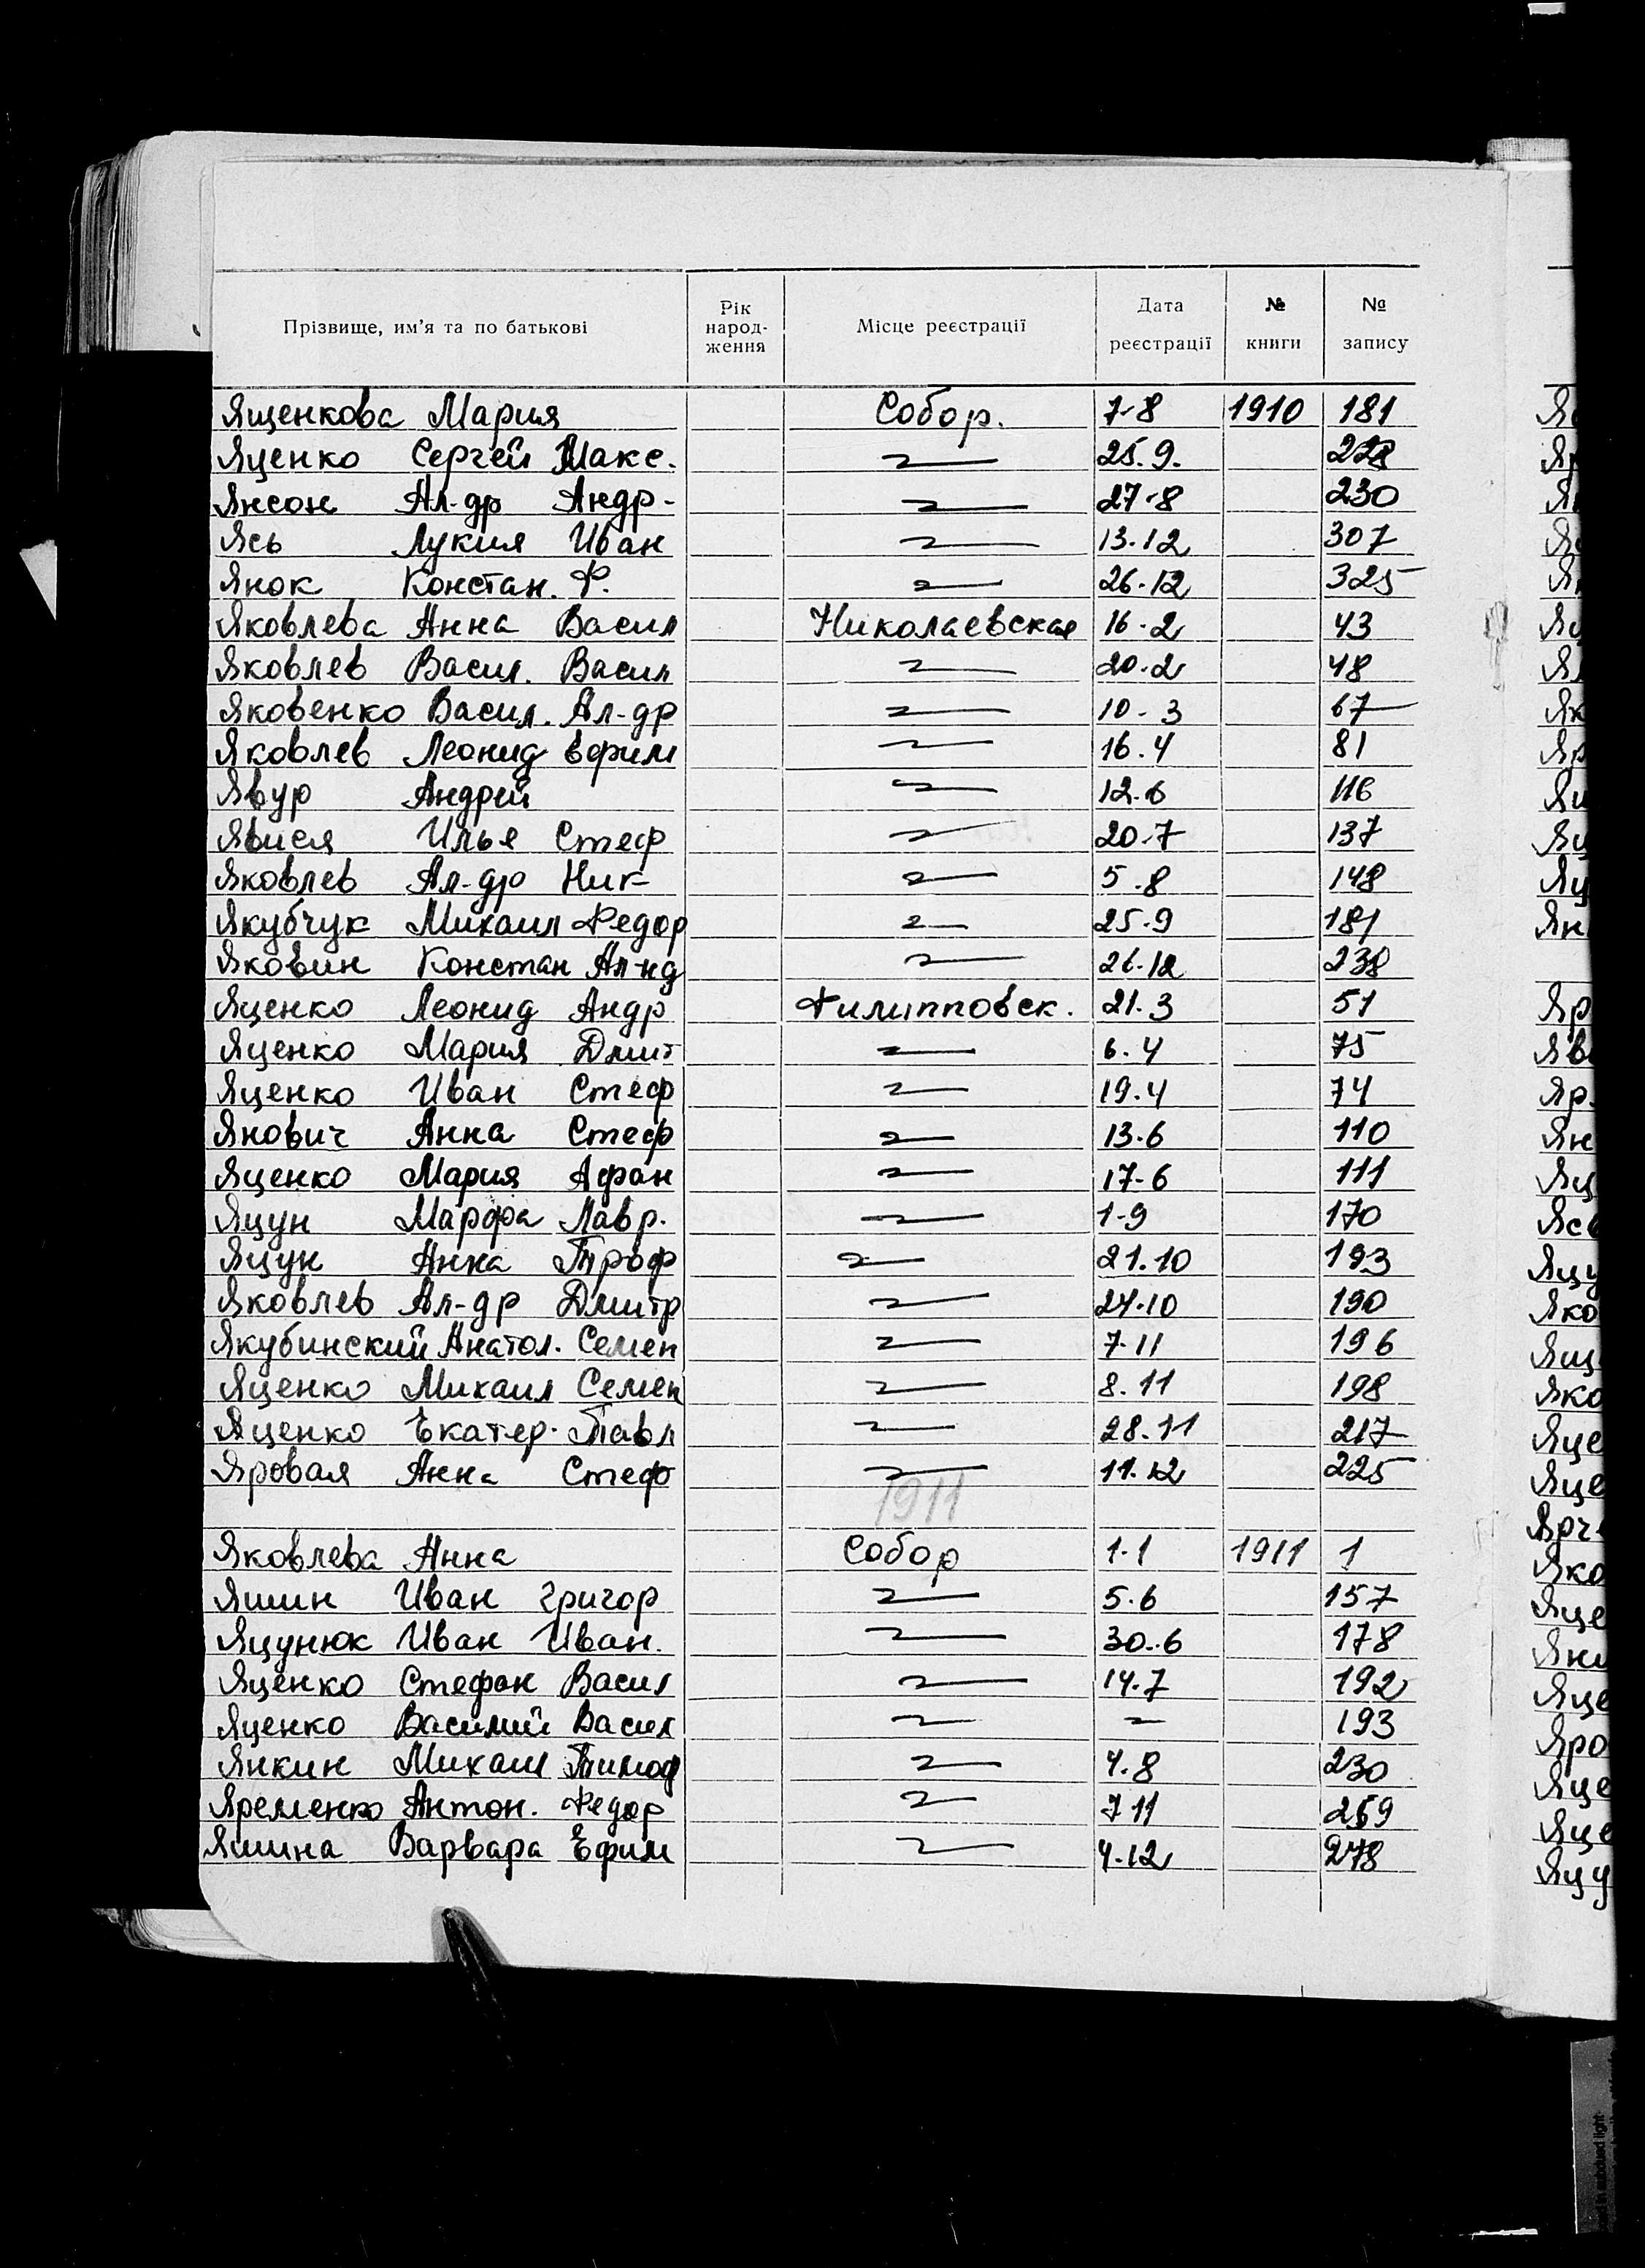 Прізвище, им'я та по батькові Рік народ- ження Місце реєстрації Дата реєстрації № книги № запису
Ященкова Мария Собор. 7-8 1910 181
Яценко Сергей Макс. 25.9. 228
Янсон Ал-др Андр- 27-8 230
Ясь Лукия Иван 13.12 307
Янок Констан. Ф. 26-12 325
Яковлева Анна Васил Николаевская 16-2 43
Яковлев Васил. Васил 20.2 48
Яковенко Васил. Ал-др 10-3 67
Яковлев Леонид Ефим 16.4 81
Явур Андрей 12.6 116
Явися Илья Стеф 20.7 137
Яковлев Ал-др Ник- 5.8 148
Якубчук Михаил Федор 25.9 181
Яковин Констан Ал-нд 26.12 238
Яценко Леонид Андр Филипповск. 21.3 51
Яценко Мария Дмит 6.4 75
Яценко Иван Стеф 19.4 74
Янович Анна Стеф 13.6 110
Яценко Мария Афан 17-6 111
Яцун Марфа Лавр. 1-9 170
Яцун Анна Троф 21.10 193
Яковлев Ал-др Дмитр 24.10 190
Якубинский Анатол. Семен 7-11 196
Яценко Михаил Семен 8.11 198
Яценко Екатер. Павл 28.11 217
Яровая Анна Стеф 11.12 225
1911
Яковлева Анна Собор 1.1 1911 1
Яшин Иван Григор 5.6 157
Яцунюк Иван Иван. 30.6 178
Яценко Стефан Васил 14.7 192
Яценко Василий Васил 193
Янкин Михаил Тимоф 4.8 230
Яременко Антон. Федор 7 11 259
Яшина Варвара Ефим 4.12 278